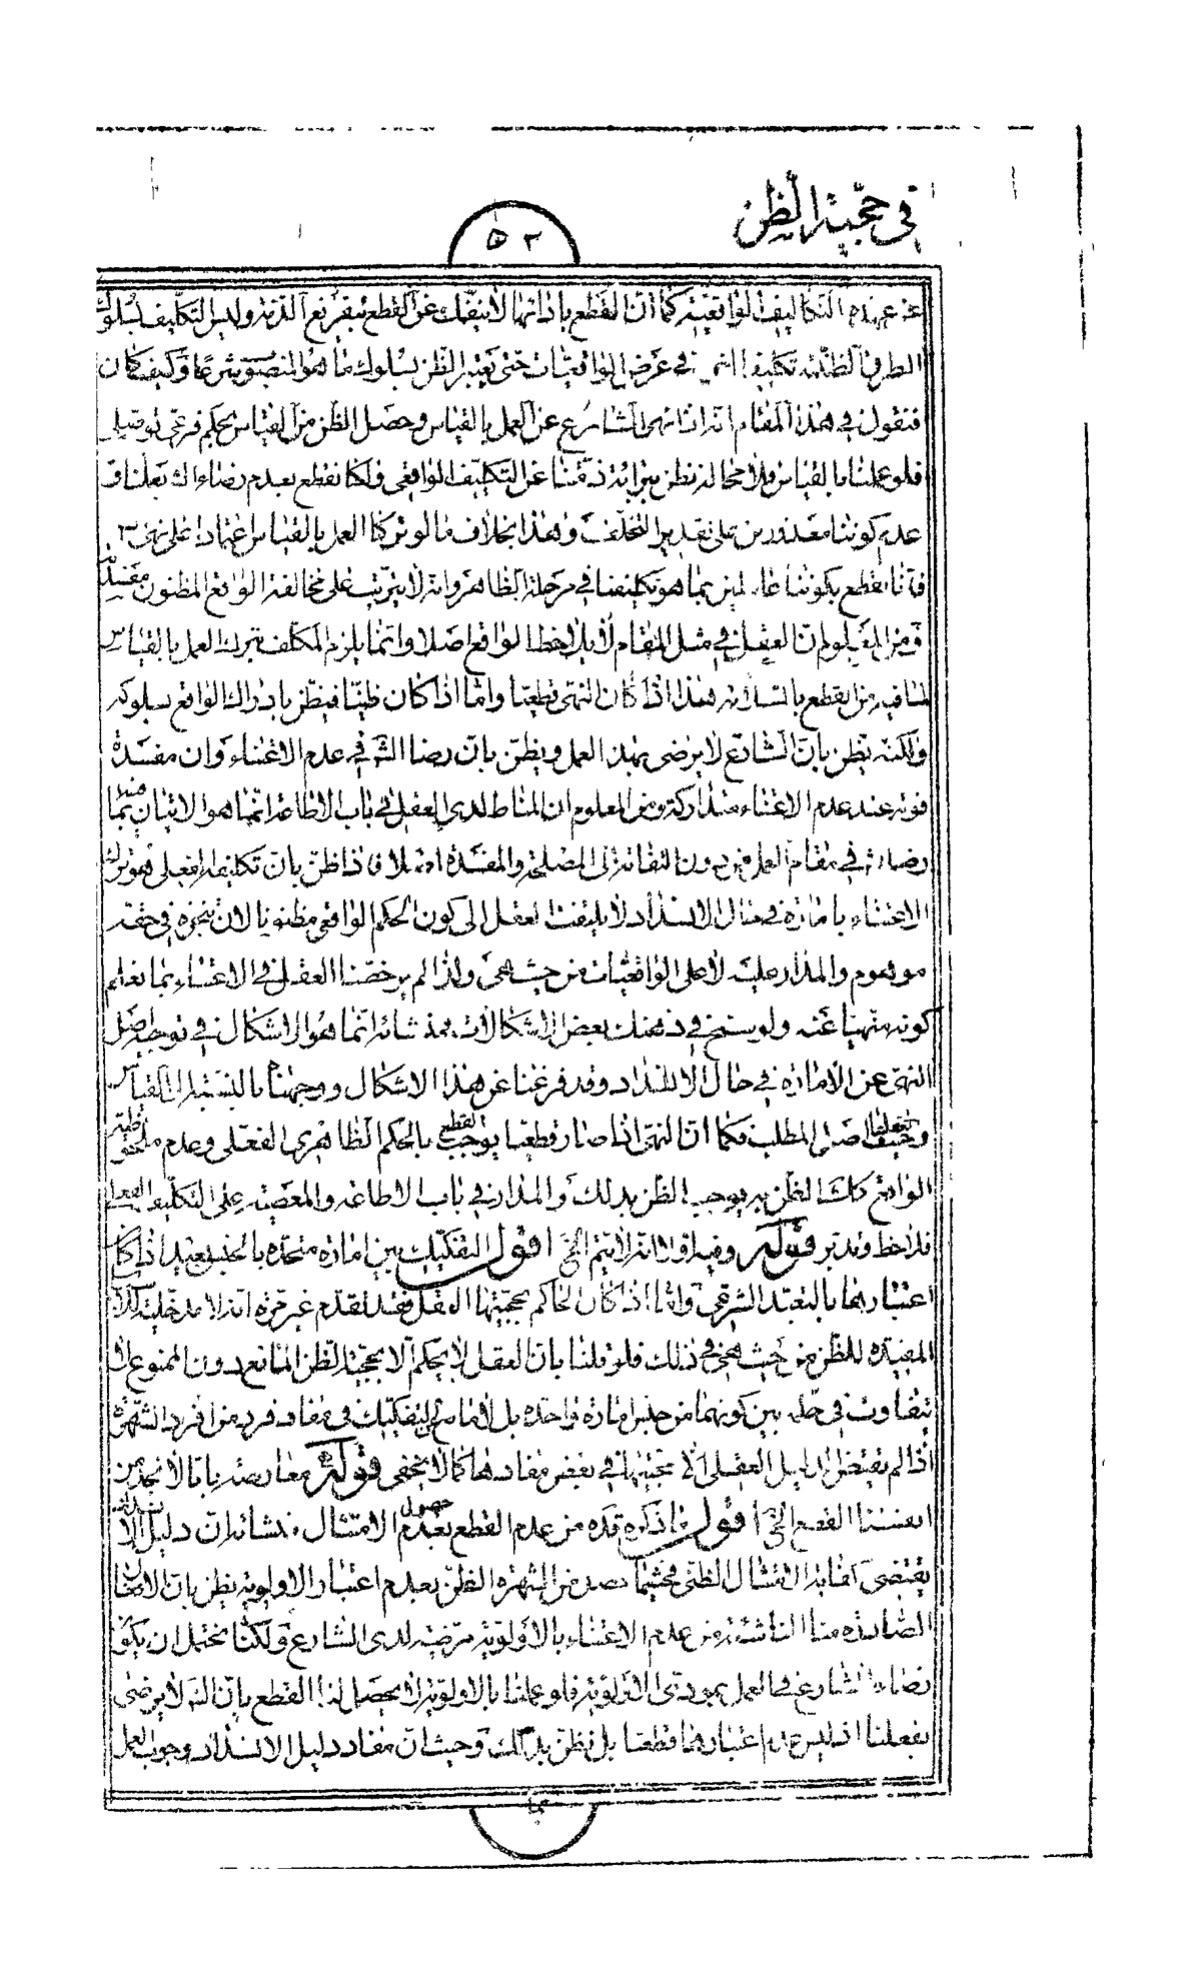 في حجية الظن
٥٢
عن عهدة التكاليف الواقعية كما ان القطع باداتها لا ينفك عن القطع بتفريغ الذمة وليس التكليف بسلوك
الطرق الظنية تكليفا في عرض الواقعيات حتى يعتبر الظن بسلوك ما هو المنصوب شرعا وكيف كان
فنقول في هذا المقام انه اذا نهى الشارع عن العمل بالقياس وحصل الظن من القياس بحكم فرعي توصلي
فلو عملنا بالقياس فلا محالة نظن ببرائة ذمتنا عن التكليف الواقعي ولكنا نقطع بعدم رضاء الله بعملنا و
عدم كوننا معذورين على تقدير التخلف وهذا بخلاف ما لو تركنا العمل بالقياس اعتمادا على نهي
فانا نقطع بكوننا عاملين بما هو تكليفنا في مرحلة الظاهر وانه لا يترتب على مخالفة الواقع المظنون مفسدة
ومن المعلوم ان العقل في مثل المقام لا يلاحظ الواقع اصلا وانما يلزم المكلف بترك العمل بالقياس
لما فيه من القطع بالسلامة هذا اذا كان النهى قطعيا واما اذا كان ظنيا فيظن بادراك الواقع بسلوكه
ولكنه يظن بان الشارع لا يرضى بهذا العمل ويظن بان رضا الشارع في عدم الاعتناء وان مفسدة
فوته عند عدم الاعتناء متداركة ومن المعلوم ان المناط لدى العقل في باب الاطاعة انما هو الاتيان بما فيه
رضاء الشارع في مقام العمل من دون التفاته الى المصلحة والمفسدة اصلا فاذا ظن بان تكليفه الفعلي هو ترك
الاعتناء بامارة في حال الانسداد لا يلتفت العقل الى كون الحكم الواقعي مظنونا لان تنجزه في حقه
موهوم والمدار عليه لا على الواقعيات من حيث هي ولذا لم يرخصنا العقل في الاعتناء بما نعلم
كونه منهيا عنه ولو سنح في ذهنك بعض الاشكالات بعد شانه انما هو الاشكال في توجيه اصل
النهى عن الامارة في حال الانسداد وقد فرغنا عن هذا الاشكال ووجهناه بالنسبة الى القياس
وحيث تعقلنا اصل المطلب فكما ان النهى اذا صار قطعيا يوجب القطع بالحكم الظاهري الفعلي وعدم ملحوظية
الواقع كذلك الظن به يوجب الظن بذلك والمدار في باب الاطاعة والمعصية على التكليف الفعلي
فلاحظ وتدبر قوله وفيه اولا انه لا يتم الخ اقول التفكيك بين امارة متحدة بالجنس بعيد اذا كان
اعتبارهما بالتعبد الشرعي واما اذا كان الحاكم بحجيتها العقل فقد تقدم غير مرة انه لا مدخلية للامارة
المفيدة للظن من حيث هي في ذلك فلو قلنا بان العقل لا يحكم الا بحجية الظن المانع دون الممنوع لا
يتفاوت في حكمه بين كونهما من جنس امارة واحدة بل لا مانع للتفكيك في مفاد فرد من افرد الشهرة
اذا لم يقتض الدليل العقلي الا حجيتها في بعض مفادها كما لا يخفى قوله معارضة بانا لا نجد من
انفسنا القطع الخ اقول ما ذكره قده من عدم القطع بعدم حصول الامتثال منشائه ان دليل الانسداد
يقتضى كفاية الامتثال الظنى فحيثما نظن من الشهرة الظن بعدم اعتبار الاولوية يظن بان الافعال
الصادرة منا الناشئة من عدم الاعتناء بالاولوية مرضية لدى الشارع ولكنا نحتمل ان يكون
رضاء الشارع في العمل بمودى الاولوية فلو عملنا بالاولوية لا يحصل لنا القطع بان الله لا يرضى
بفعلنا اذ ليس عدم اعتبارها قطعيا بل نظن بذلك وحيث ان مفاد دليل الانسداد وجوب العمل
بما